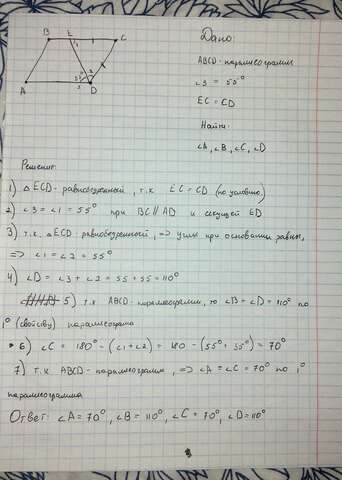 B E C
1
A D
55° 2
3
Дано:
ABCD - параллелограмм
∠3 = 55°
EC = CD
Найти:
∠A, ∠B, ∠C, ∠D
Решение:
1) △ECD - равнобедренный, т.к EC = CD (по условию)
2) ∠3 = ∠1 = 55° при BC || AD и секущей ED
3) т.к. △ECD равнобедренный, ⇒ углы при основании равны,
⇒ ∠1 = ∠2 = 55°
4) ∠D = ∠3 + ∠2 = 55 + 55 = 110°
5) т.к ABCD - параллелограмм, то ∠B = ∠D = 110° по
1° (свойству) параллелограма
6) ∠C = 180° - (∠1 + ∠2) = 180 - (55° + 55°) = 70°
7) т.к ABCD - параллелограмм, ⇒ ∠A = ∠C = 70° по 1°
параллелограмма
Ответ: ∠A = 70°, ∠B = 110°, ∠C = 70°, ∠D = 110°